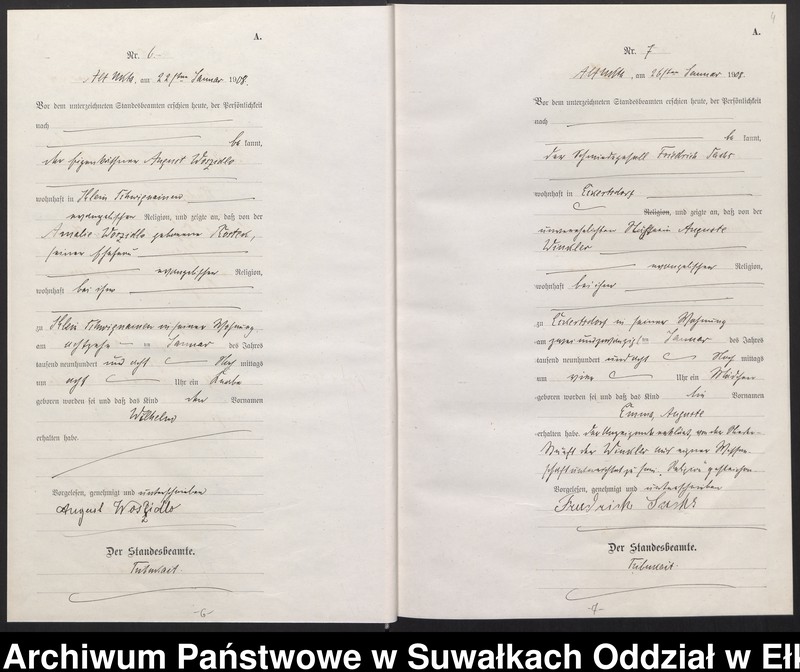 A.
Nr. 6
am 22ten Januar 1908.
Vor dem unterzeichneten Standesbeamten erschien heute, der Persönlichkeit
nach
be kannt,
der Eigenkäthner August Woszidlo
wohnhaft in Klein
evangelischer Religion, und zeigte an, daß von der
Amalie Woszidlo geborene
seiner Ehefrau
evangelischer Religion,
wohnhaft bei ihm
zu Klein in seiner Wohnung
am Januar des Jahres
tausend neunhundert und acht Nach mittags
um acht Uhr ein Knabe
geboren worden sei und daß das Kind den Vornamen
Wilhelm
erhalten habe.
Vorgelesen, genehmigt und unterschrieben
August Woszidlo
Der Standesbeamte.
-6-
4
A.
Nr. 7
am 26ten Januar 1908.
Vor dem unterzeichneten Standesbeamten erschien heute, der Persönlichkeit
nach
be kannt,
der Schmiedegesell Friedrich Sachs
wohnhaft in Eckertsdorf
Religion, und zeigte an, daß von der
unverehelichten Auguste
Winkler
evangelischer Religion,
wohnhaft bei ihm
zu Eckertsdorf in seiner Wohnung
am zwei und zwanzigsten Januar des Jahres
tausend neunhundert und acht Nach mittags
um vier Uhr ein Mädchen
geboren worden sei und daß das Kind die Vornamen
Emma, Auguste
erhalten habe. Der Anzeigende erklärt, von der Nieder-
kunft der Winkler aus eigner Wissen-
schaft unterrichtet zu sein.
Vorgelesen, genehmigt und unterschrieben
Friedrich Sachs
Der Standesbeamte.
-7-
Archiwum Państwowe w Suwałkach Oddział w Eł